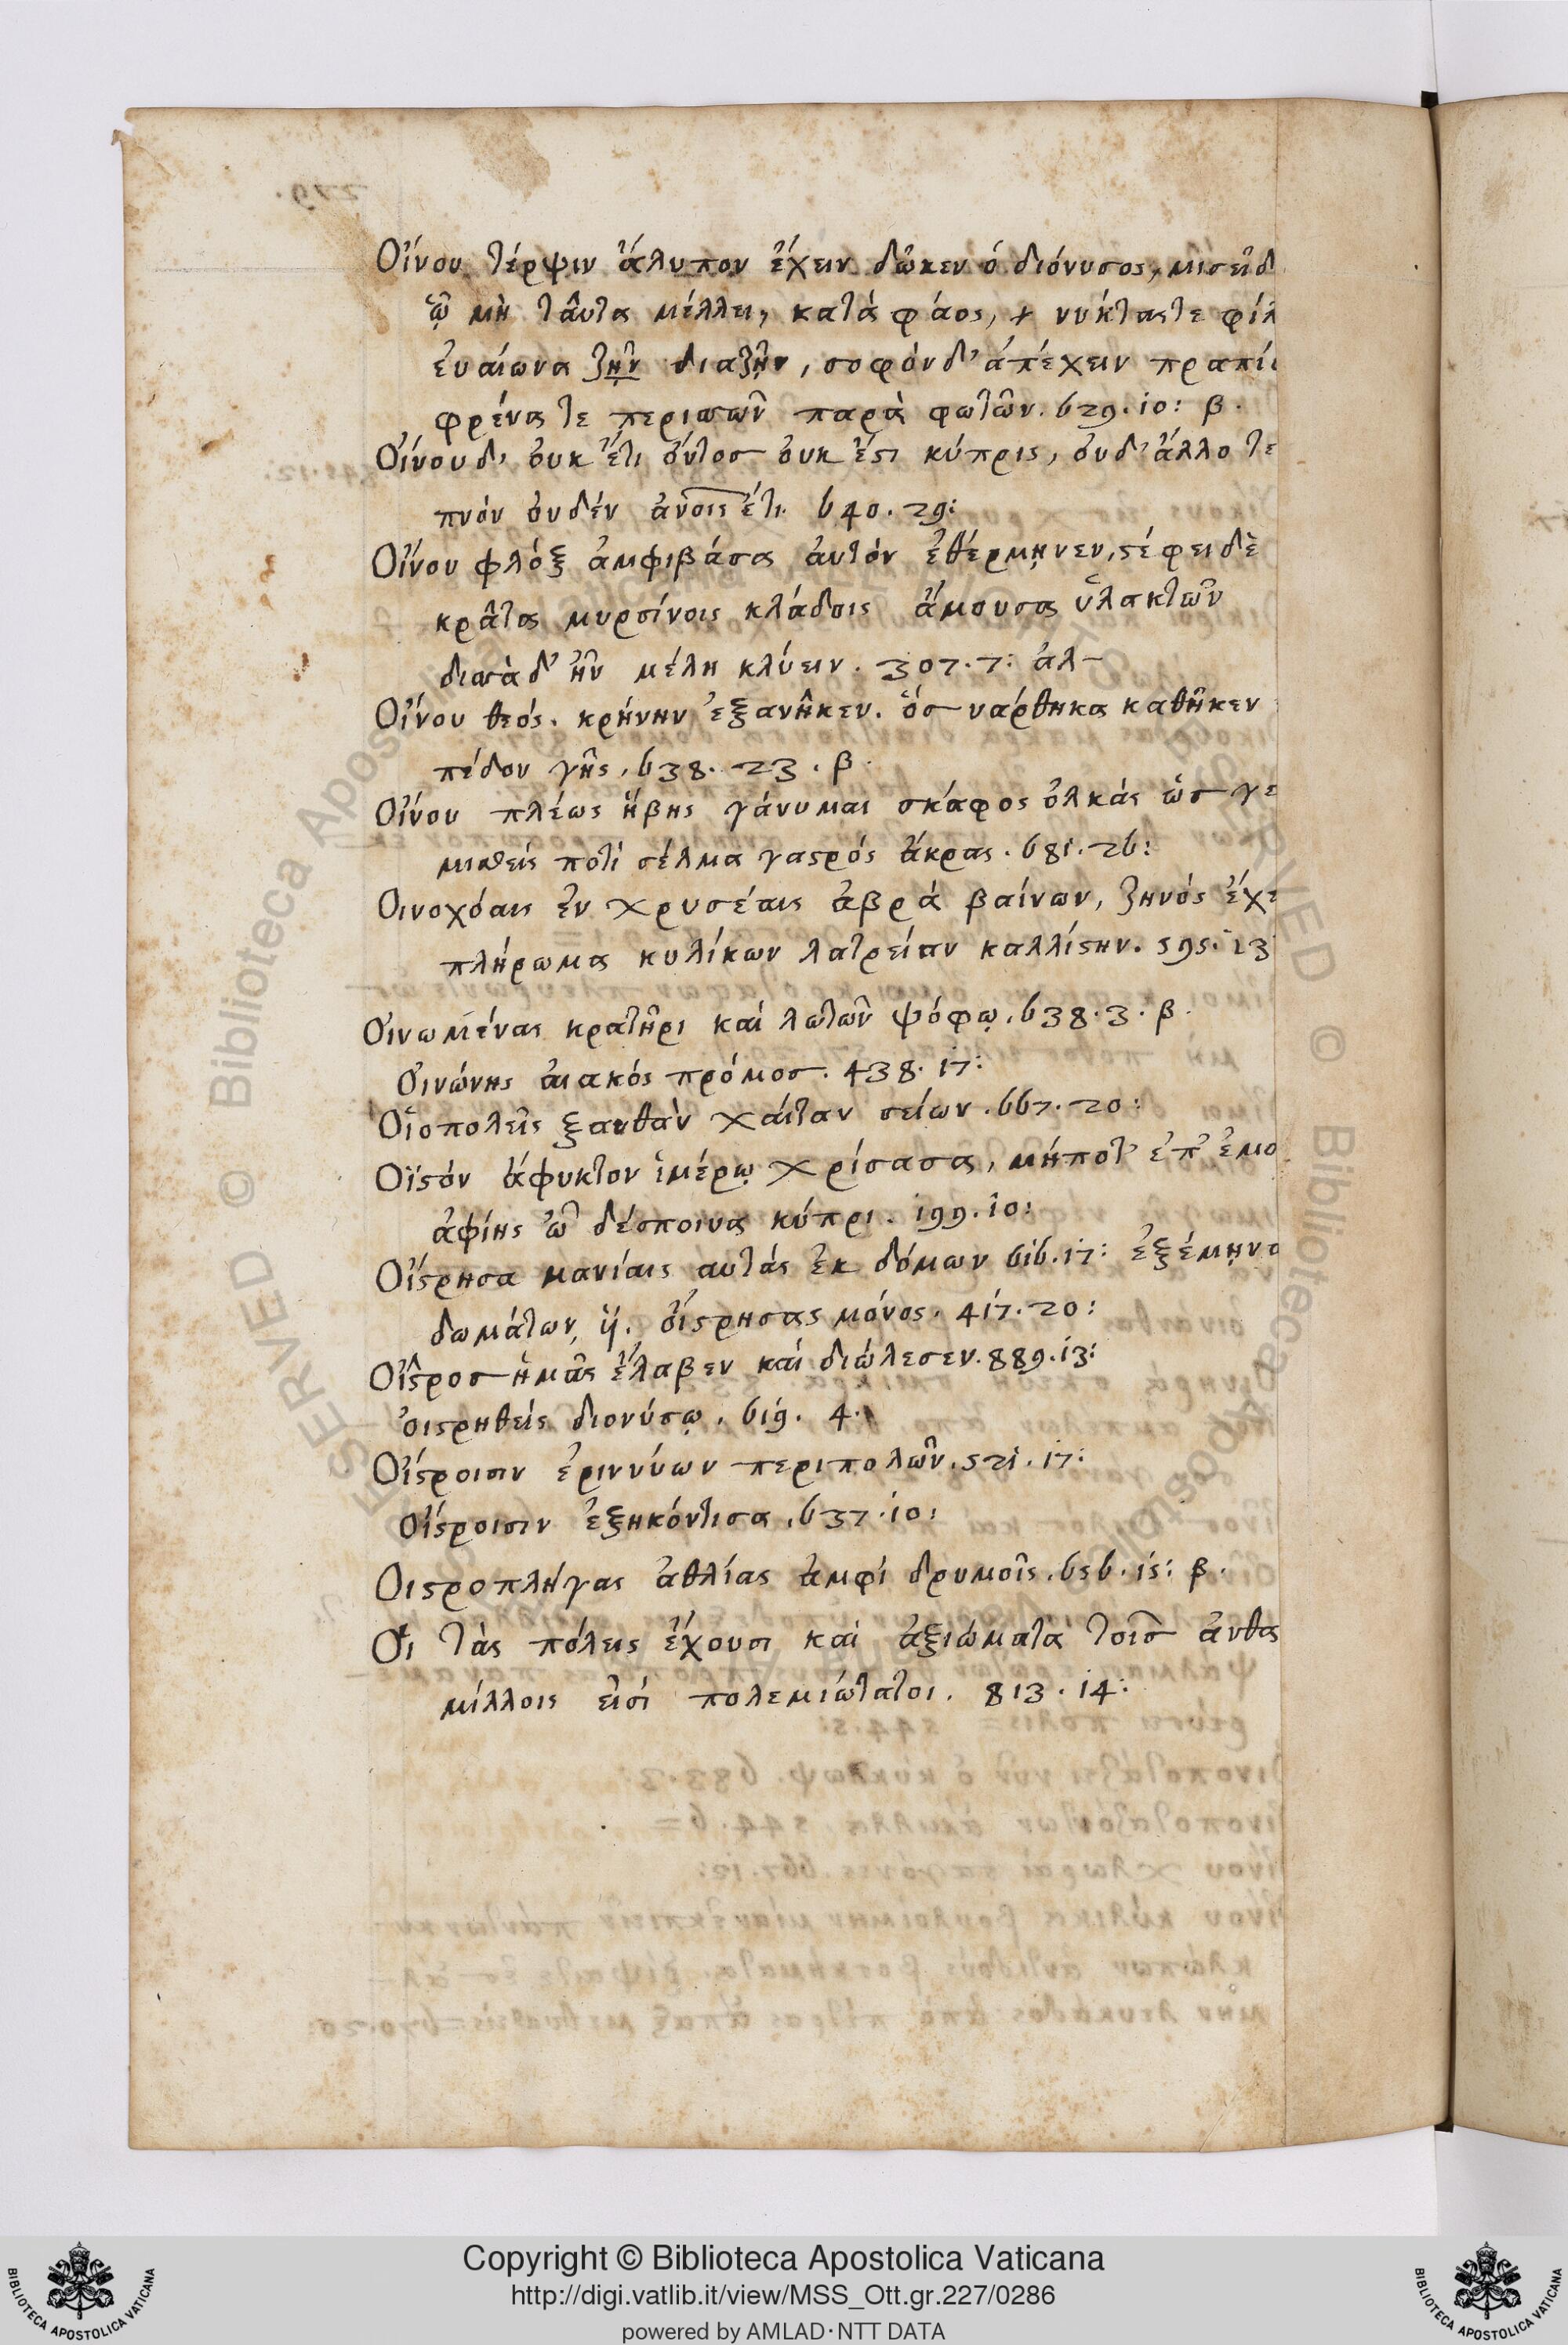 Οἴνου τέρψιν ἄλυπον ἔχειν δῶκεν ὁ διόνυσος, μισεῖ δ
ᾧ μὴ ταῦτα μέλλει, κατὰ φάος, + νύκτας τε φίλ
ἐυαίωνα ζῆν διαζῆν, σοφὸν δ' ἀπέχειν πραπί
φρένας τε περισσῶν παρὰ φωτῶν. 629. 10: β.
Οἴνου δ' ουκ ἔτι ὄντος ουκ ἔστι κύπρις, ουδ' ἄλλο τε
πνὸν ουδὲν ἀνοις ἔτι. 640. 29:
Οἴνου φλὸξ ἀμφιβάσα αὐτὸν ἐθέρμῃνεν, στέφει δὲ
κρᾶτα μυρσίνοις κλάδοις ἄμουσα ὑλακτῶν
δισσὰ δ' ἦν μέλη κλύειν. 307. 7: ἀλ-
Οἴνου θεός. κρήνην ἐξανῆκεν. ὃς νάρθηκα καθῆκεν
πέδον γῆς, 638. 23. β.
Οἴνου πλέως ἥβης γάνυμαι σκάφος ὁλκὰς ὣς γε
μισθεὶς ποτὶ σέλμα γαστρὸς ἄκρας. 681. 26:
Οινοχόαις ἐν χρυσέαις ἁβρὰ βαίνων, ζηνὸς ἔχε
πλήρωμα κυλίκων λατρείαν καλλίστην. 595. 13
Οινωμένας κρατῆρι καὶ λωτῶν ψόφῳ. 638. 3. β.
Οἰνώνης αιακὸς πρόμος. 438. 17:
Οἰοπολεῖς ξανθὰν χαίταν σείων. 667. 20:
Οϊστὸν ἄφυκτον ἱμέρῳ χρίσασα, μήποτ' ἐπ' ἐμο
ἀφίης ὦ δέσποινα κύπρι. 199. 10:
Οἴστρησα μανίαις αυτὰς ἐκ δόμων 616. 17: ἐξέμῃνα
δωμάτων, ἢ. οἴστρησας μόνος. 417. 20:
Οἶστρος ἡμᾶς ἔλαβεν καὶ διώλεσεν. 889. 13:
οἰστρηθεὶς διονύσῳ. 619. 4.
Οἴστροισιν ἐριννύων περιπολῶν. 521. 17:
Οἴστροισιν ἐξηκόντισα. 637. 10:
Οιστροπλήγας ἀθλίας ἀμφὶ δρυμοῖς. 656. 15: β.
Οἱ τὰς πόλεις ἔχουσι καὶ ἀξιώματα τοῖς ἀνθα
μίλλοις εἰσὶ πολεμιώτατοι. 813. 14:
Copyright © Biblioteca Apostolica Vaticana
http://digi.vatlib.it/view/MSS_Ott.gr.227/0286
powered by AMLAD·NTT DATA